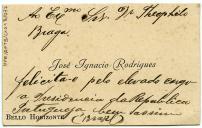 Ao Exmº Snr. Dr Theophilo
Braga
José Ignacio Rodrigues
felicita-o pelo elevado cargo
a Presidencia da Republica
Portugueza bem assim
Bello Horizonte (Brazil)